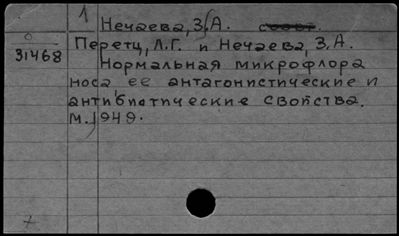 1
Нечаева, З.А. соавт.
0
31468
Перетц, Л.Г. и Нечаева, З.А.
Нормальная микрофлора
носа ее антагонистические и
антибиотические свойства.
М. 1949.